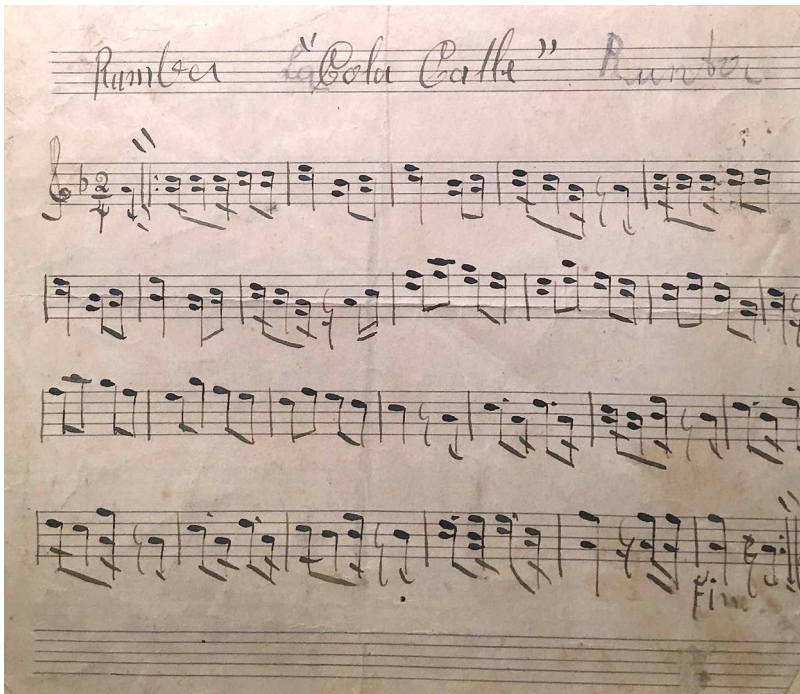 Rumba "La Cola Calle" Rumba
2
4
Fin.